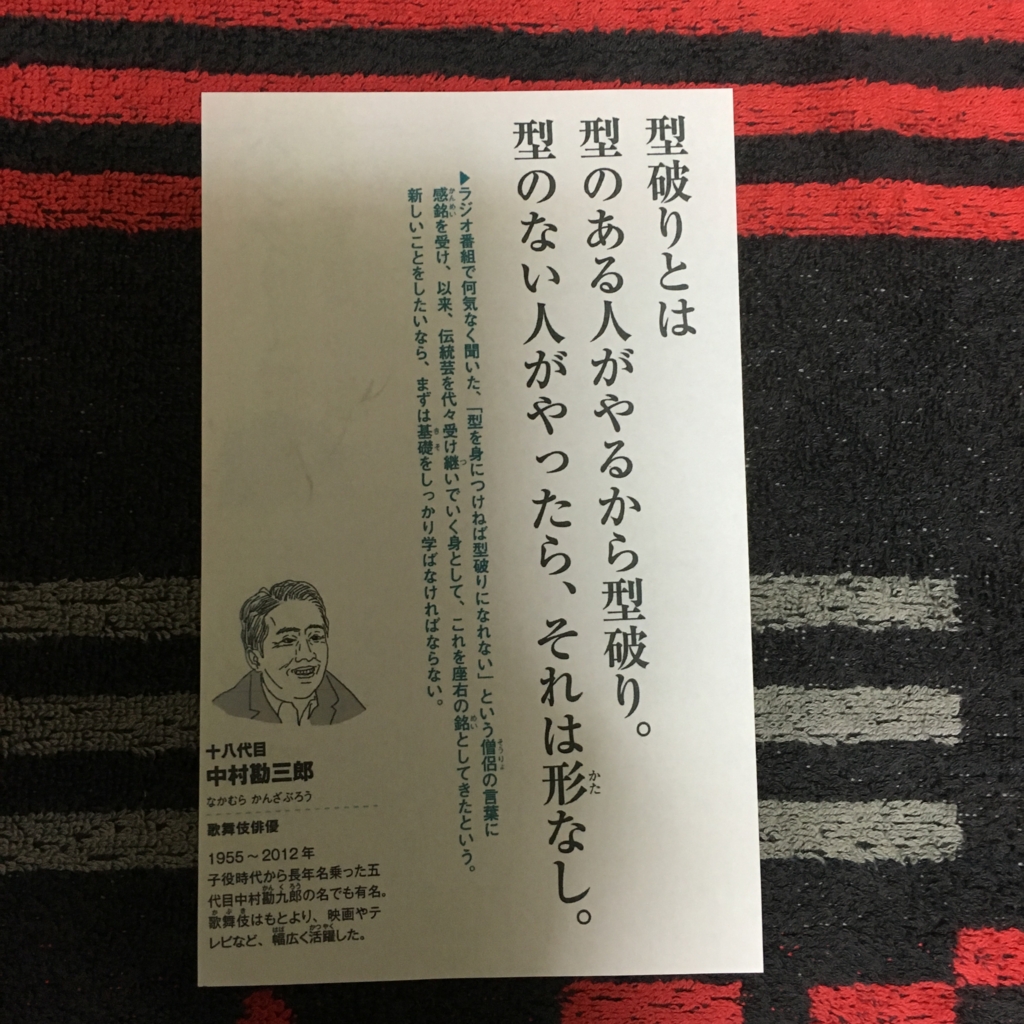 型破りとは
型のある人がやるから型破り。
型のない人がやったら、それは形なし。
かた
▶ラジオ番組で何気なく聞いた、「型を身につけねば型破りになれない」という僧侶の言葉に
そうりょ
感銘を受け、以来、伝統芸を代々受け継いでいく身として、これを座右の銘としてきたという。
かんめい
つ
めい
新しいことをしたいなら、まずは基礎をしっかり学ばなければならない。
きそ
十八代目
中村勘三郎
なかむら かんざぶろう
歌舞伎俳優
1955～2012年
子役時代から長年名乗った五
代目中村勘九郎の名でも有名。
かんくろう
歌舞伎はもとより、映画やテ
かぶき
レビなど、幅広く活躍した。
はば
かつやく